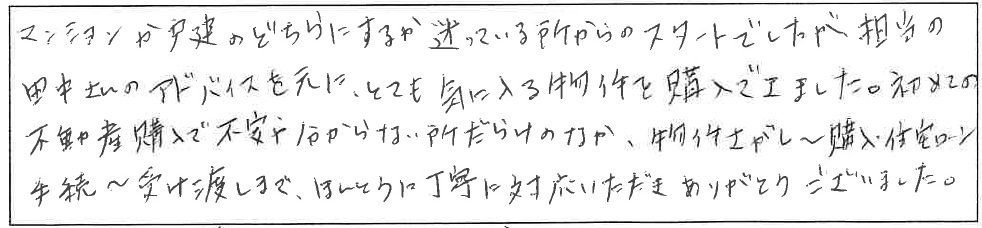 マンションか戸建のどちらにするか迷っている所からのスタートでしたが、担当の
田中さんのアドバイスを元に、とても気に入る物件を購入できました。初めての
不動産購入で不安や分からない所だらけのなか、物件さがし〜購入・住宅ローン
手続〜受け渡しまで、ほんとうに丁寧に対応いただきありがとうございました。